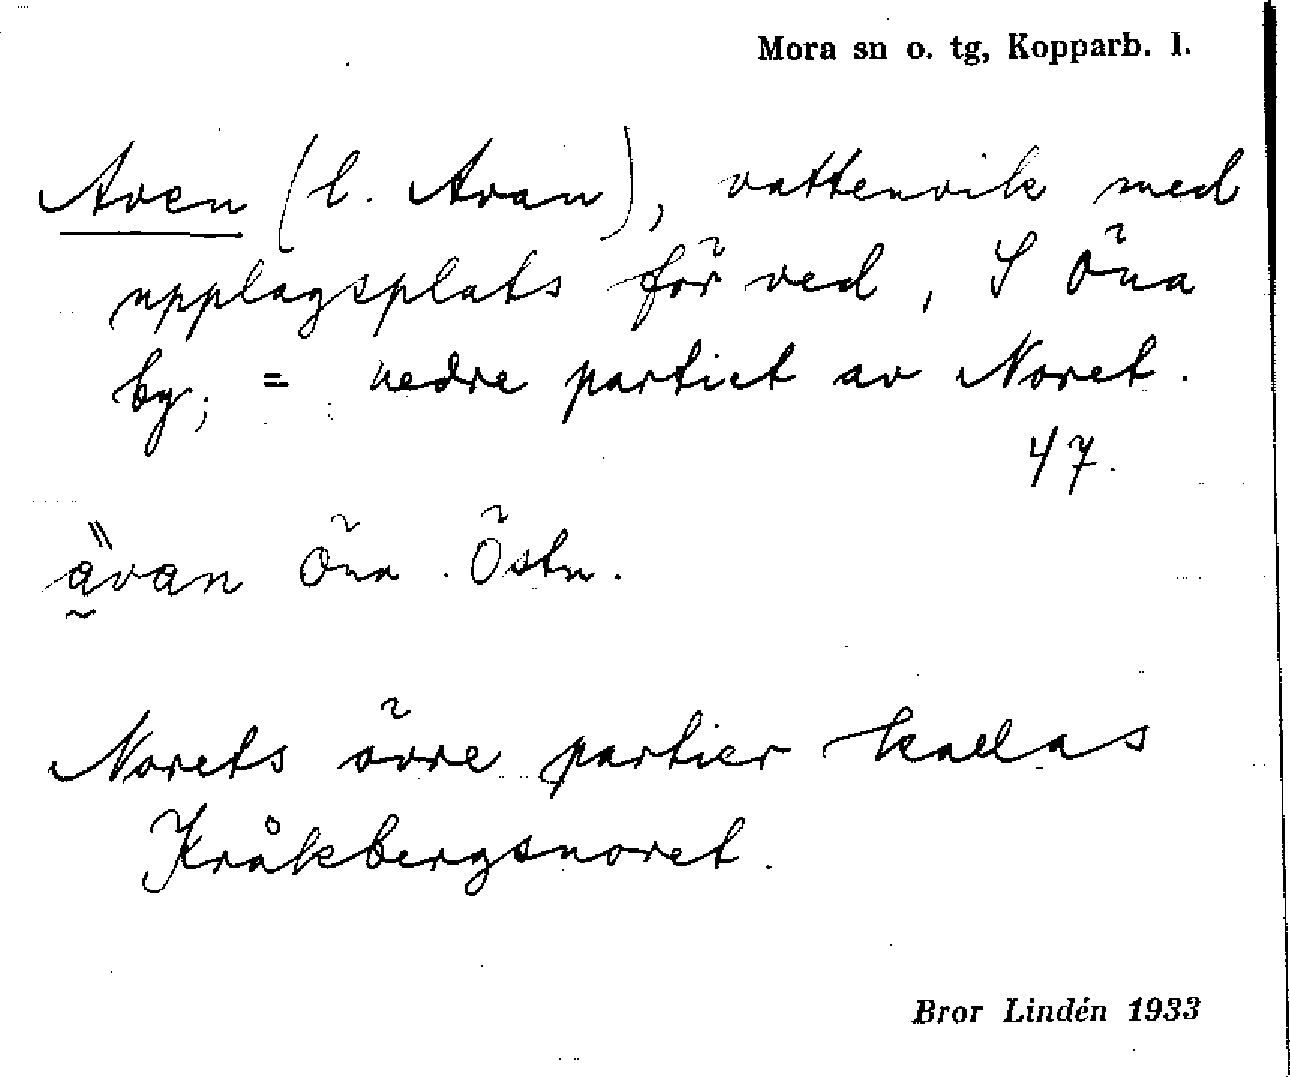 Mora sn o. tg, Kopparb. l.
Aven (l. Avan), vattenvik med
upplagsplats för ved, S Öna
by; = nedre partiet av Noret.
47.
a̰̋van Öna. Östn.
Norets övre partier kallas
Kråkbergsnoret.
Bror Lindén 1933